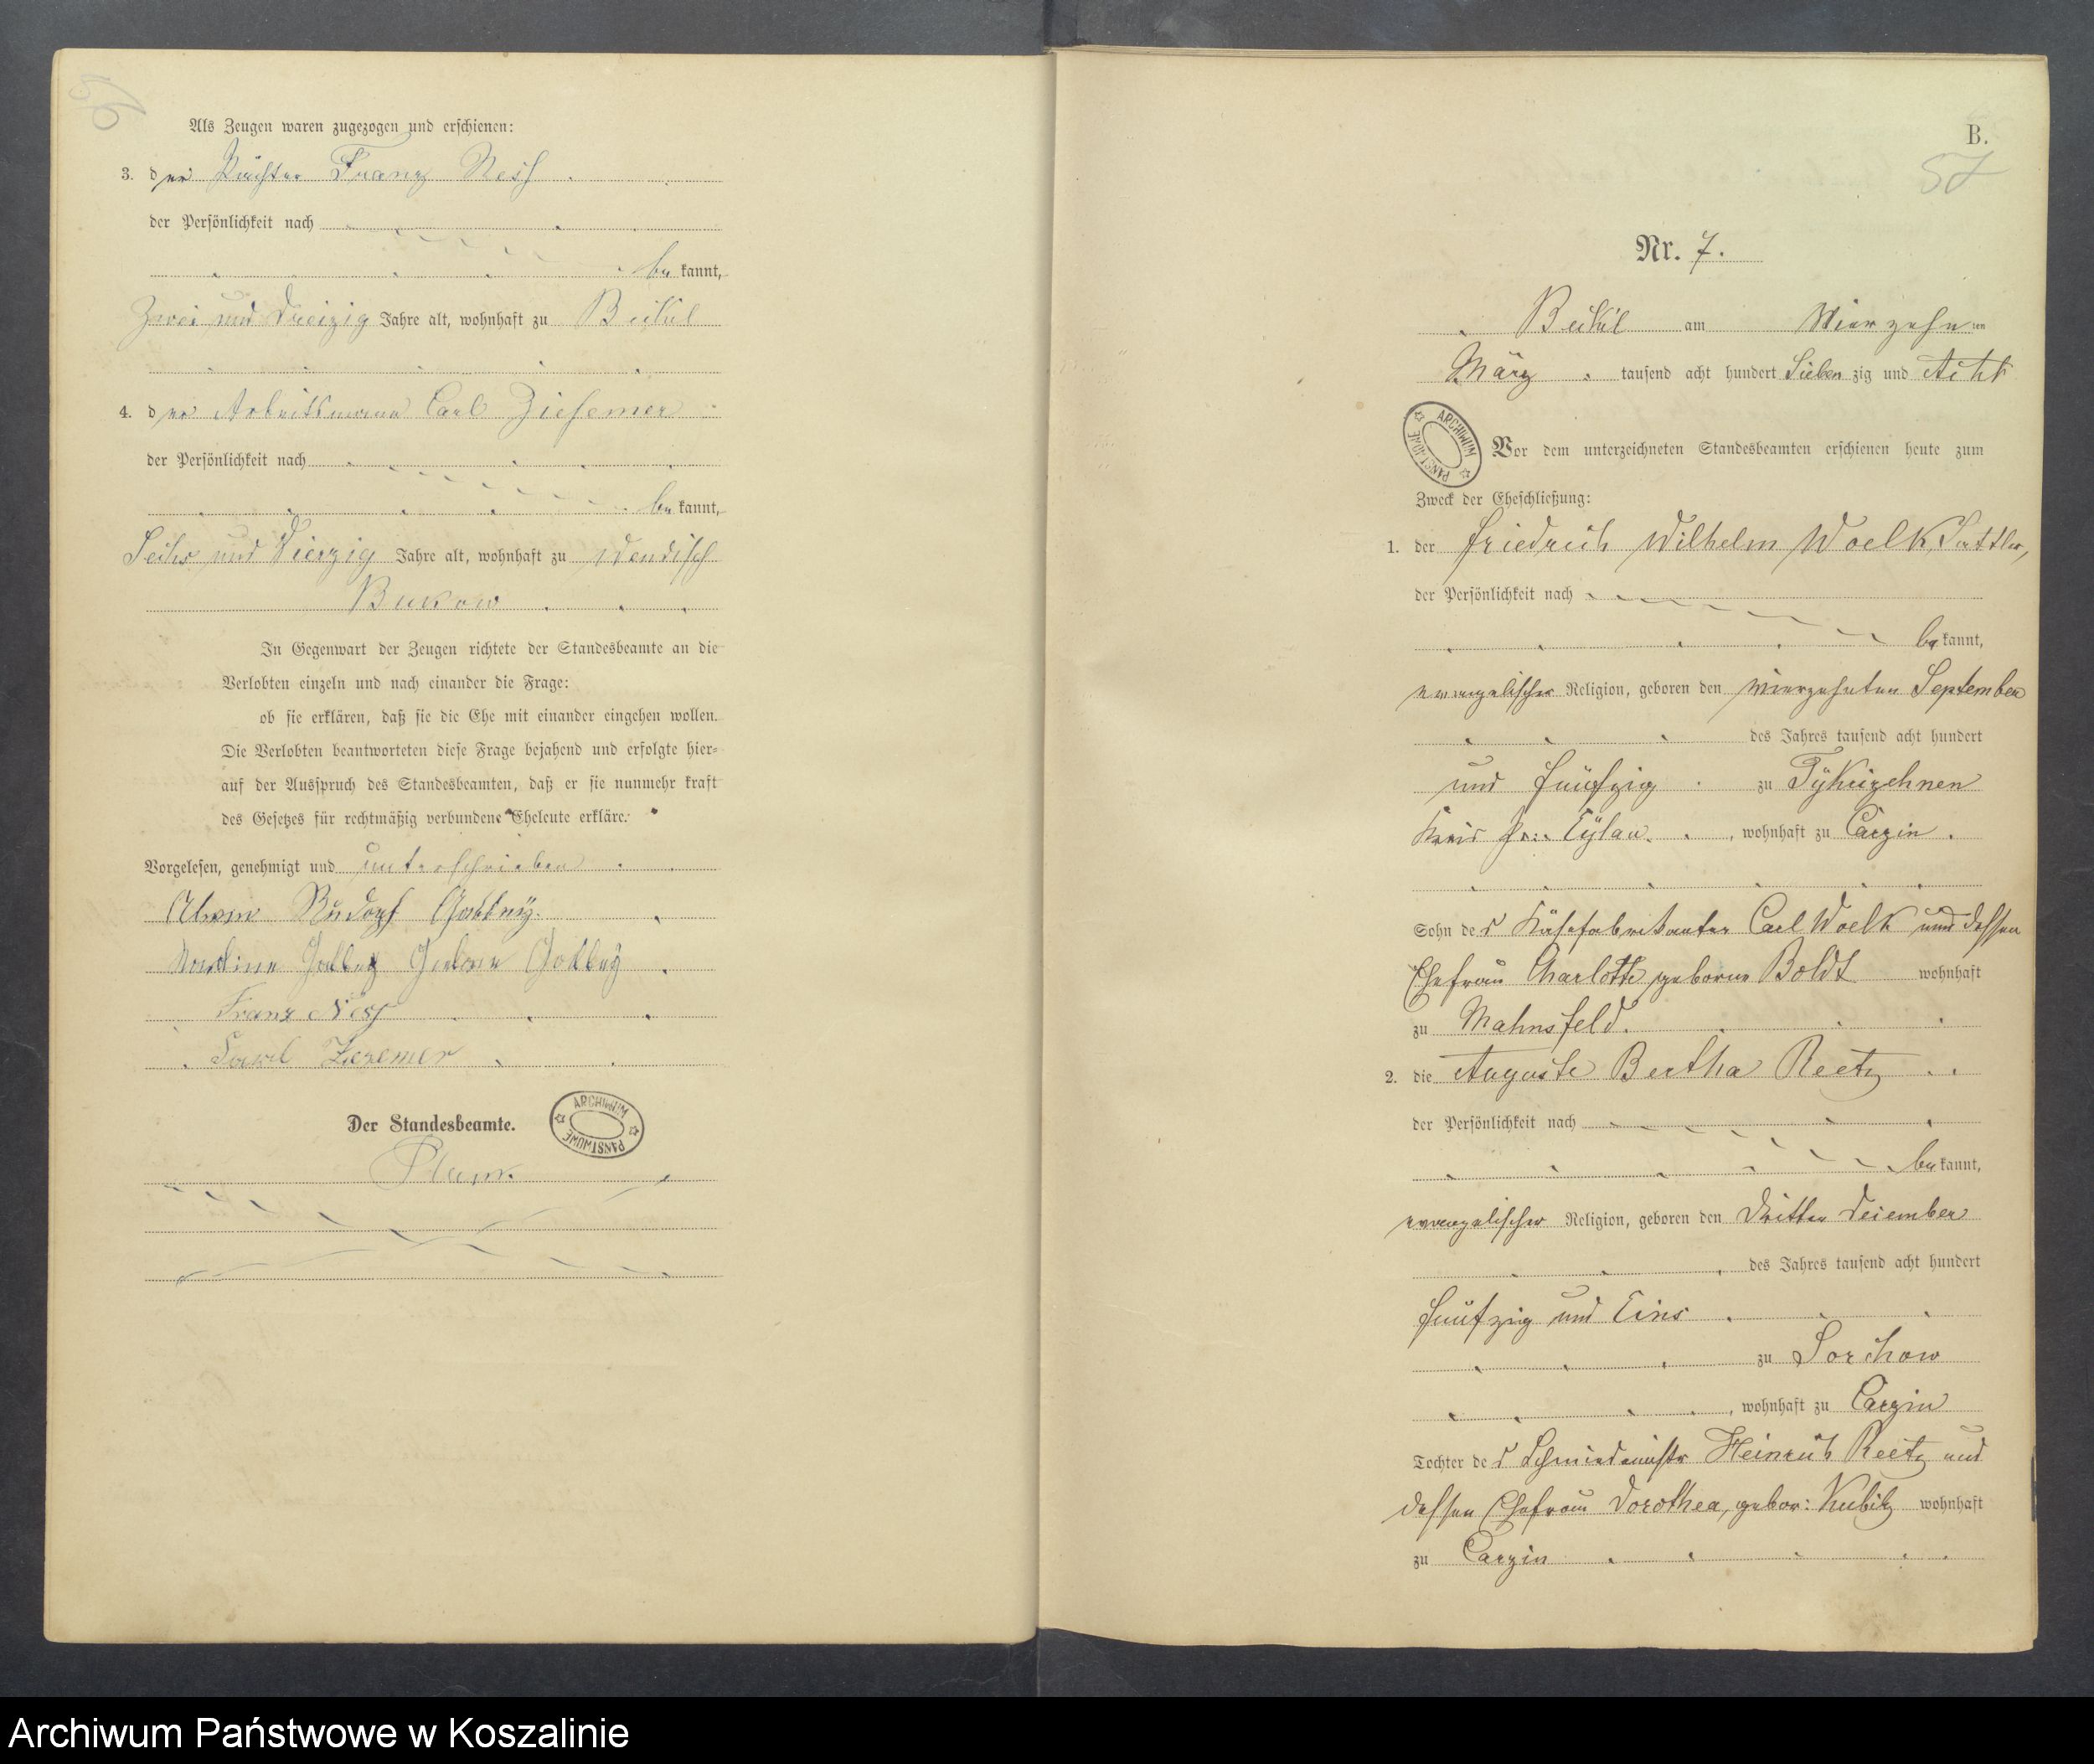 56
Als Zeugen waren zugezogen und erschienen:
3. der Pächter Franz Ness
der Persönlichkeit nach
bekannt,
Zwei und Dreizig Jahre alt, wohnhaft zu
4. der Arbeitsmann Carl Ziesemer
der Persönlichkeit nach
bekannt,
Sechs und Vierzig Jahre alt, wohnhaft zu Wendisch
Bukow
In Gegenwart der Zeugen richtete der Standesbeamte an die
Verlobten einzeln und nach einander die Frage:
ob sie erklären, daß sie die Ehe mit einander eingehen wollen.
Die Verlobten beantworteten diese Frage bejahend und erfolgte hier-
auf der Ausspruch des Standesbeamten, daß er sie nunmehr kraft
des Gesetzes für rechtmäßig verbundene Eheleute erkläre.
Vorgelesen, genehmigt und unterschrieben
Franz Ness
Carl Zesemer
Der Standesbeamte.
ARCHIWUM PAŃSTWOWE
B.
57
Nr. 7.
am Vierzehnten
März tausend acht hundert Siebenzig und Acht
ARCHIWUM PAŃSTWOWE
Vor dem unterzeichneten Standesbeamten erschienen heute zum
Zweck der Eheschließung:
1. der Friedrich Wilhelm Woelk, Sattler,
der Persönlichkeit nach
bekannt,
evangelischer Religion, geboren den vierzehnten September
des Jahres tausend acht hundert
und fünfzig zu
Kreis Pr: Eylau, wohnhaft zu Carzin
Sohn des Käsefabrikanten Carl Woelk und dessen
Ehefrau Charlotte geborne Boldt wohnhaft
zu Mahnsfeld.
2. die Auguste Bertha Reetz
der Persönlichkeit nach
bekannt,
evangelischer Religion, geboren den Dritten Dezember
des Jahres tausend acht hundert
fünfzig und Eins
zu Sorchow
, wohnhaft zu Carzin
Tochter des Schmiedemstr Heinrich Reetz und
dessen Ehefrau Dorothea, gebor: Kubitz wohnhaft
zu Carzin
Archiwum Państwowe w Koszalinie